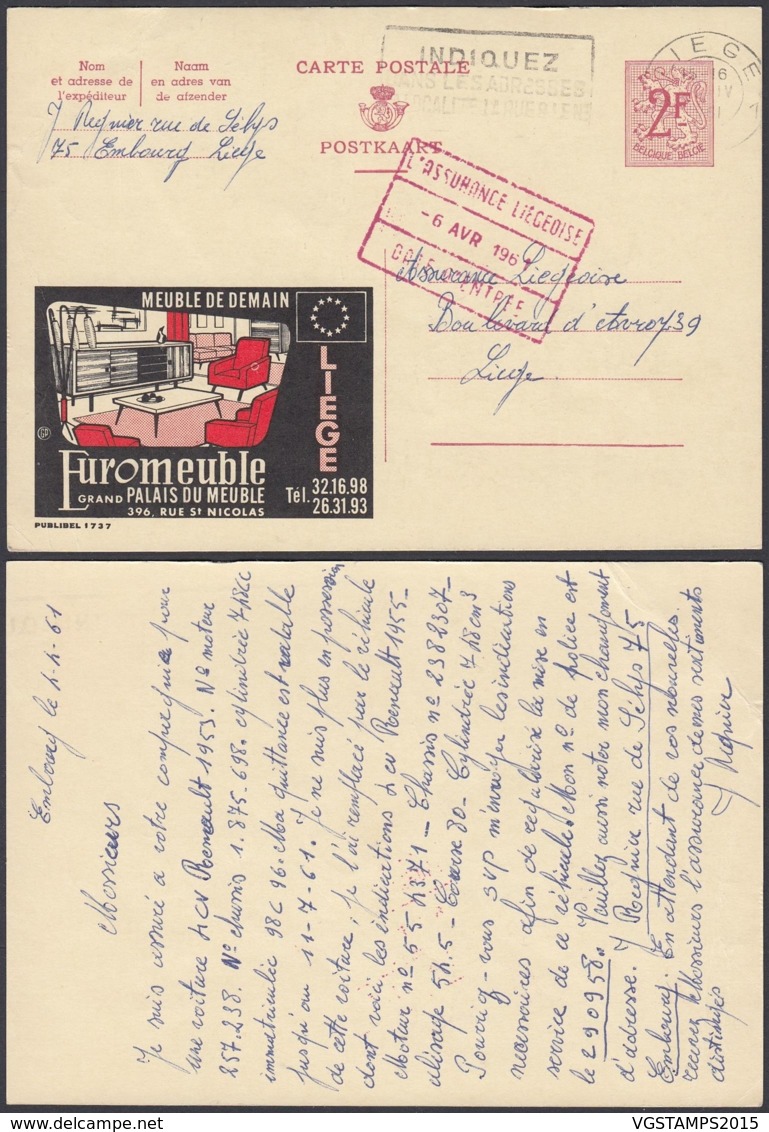 Nom
et adresse de
l'expéditeur
Naam
en adres van
de afzender
CARTE POSTALE
POSTKAART
INDIQUEZ
DANS LES ADRESSES
LIEGE 1
2F
BELGIQUE-BELGIË
J Regnier rue de Sélys
75 Embourg Liège
L'ASSURANCE LIÉGEOISE
-6 AVR 196
Assurance Liegeoise
Boulevard d'Avroy 39
Liege
MEUBLE DE DEMAIN
LIEGE
Euromeuble
GRAND PALAIS DU MEUBLE
396, RUE St NICOLAS
Tél. 32.16.98
26.31.93
PUBLIBEL 1737
Embourg le 4-4-61
Messieurs
Je suis assuré a votre compagnie pour
une voiture 4 CV Renault 1953. No moteur
257-238. No chassis 1.875-698. cylindrée 748CC
immatriculée 98C96. Ma quittance est valable
jusqu'au 11-7-61. Je ne suis plus en possession
de cette voiture, je l'ai remplacé par le véhicule
dont voici les indications 4 cv Renault 1955-
Moteur no 55 4371 - Chassis no 2382307-
alésage 54.5 - Course 80 - Cylindrée 748cm3
Pourriez-vous SVP m'envoyer les indications
necessaires afin de regulariser la mise en
service de ce véhicule. Mon no de police est
le 290958. Veuillez aussi noter mon changement
d'adresse. J Regnier rue de Sélys 75
Embourg. En attendant de vos nouvelles
recevez Messieurs l'assurance de mes sentiments
distingués
J Regnier
VGSTAMPS2015